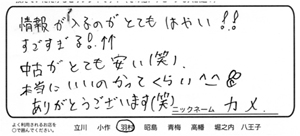 情報が入るのがとてもはやい!!
すごすぎる!↑↑
中古がとても安い(笑)
本当にいいのかってくらい^^
ありがとうございます(笑)
ニックネーム カメ
よく利用されるお店を
○で囲んでください。
立川 小作 羽村 昭島 青梅 高幡 堀之内 八王子